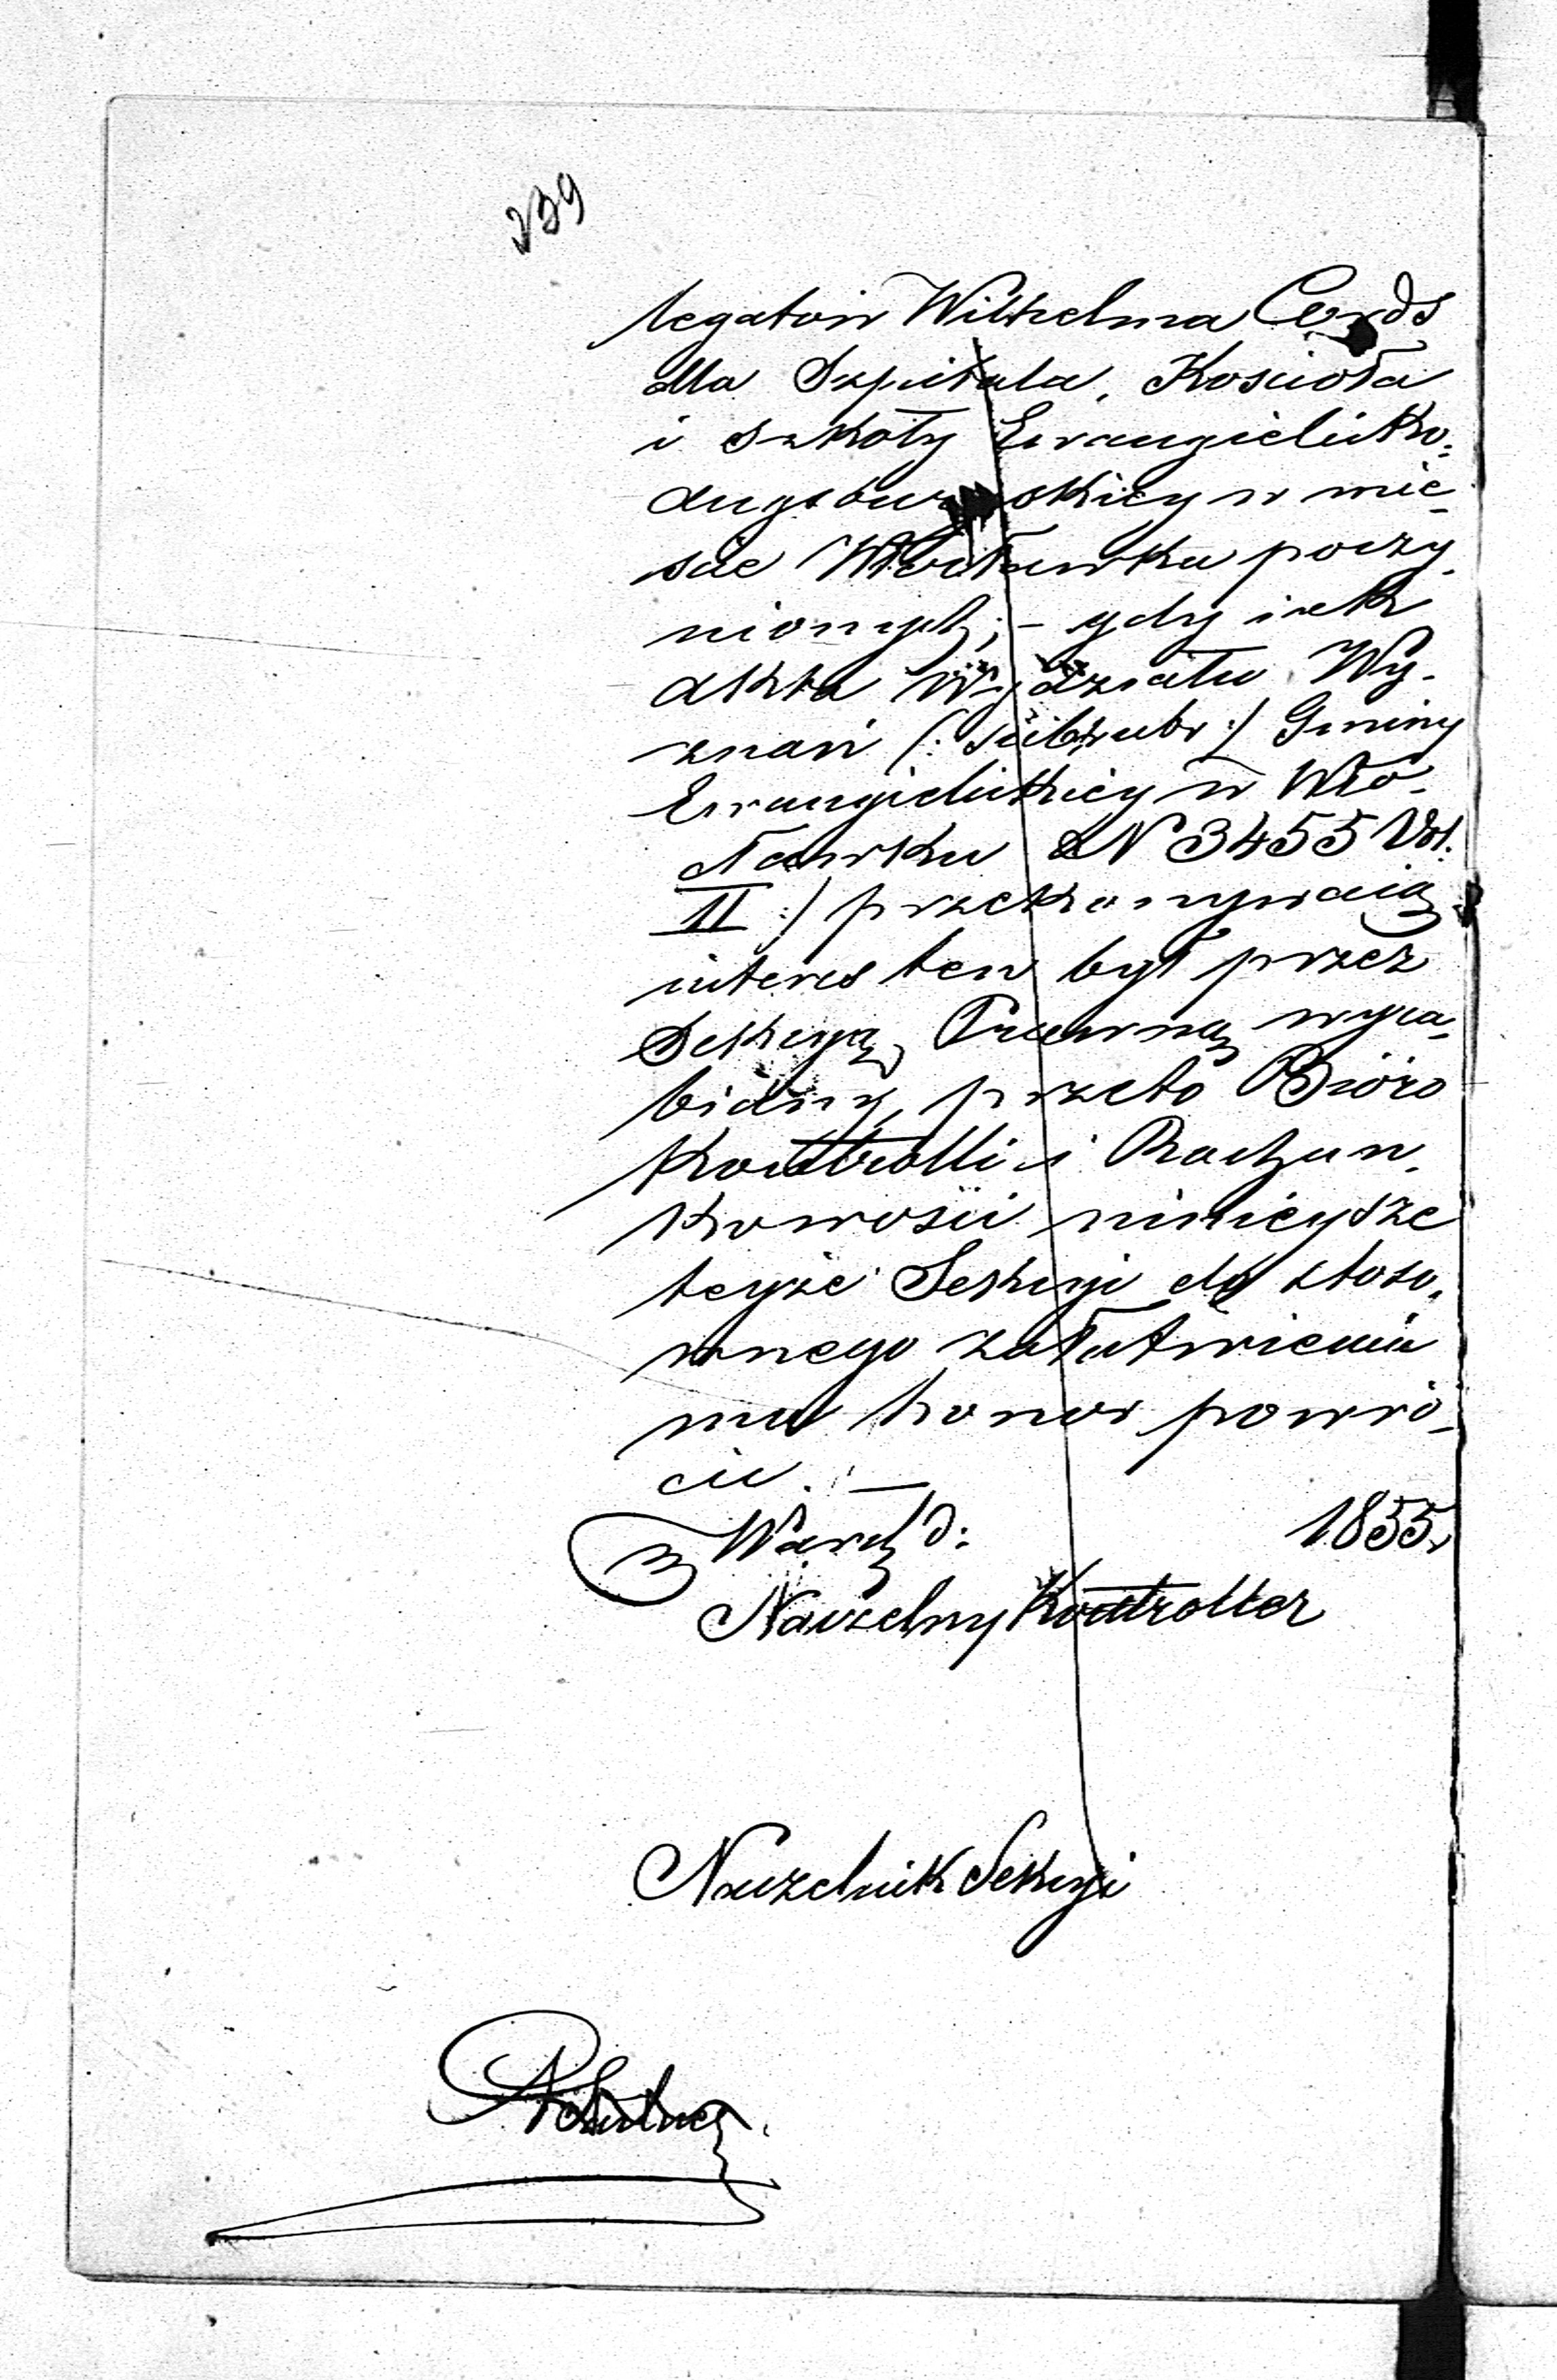 239
legatów Wilhelma Cords
dla Szpitala, Kościoła
i szkoły Ewangielicko-
augsburgskiey w mie-
ście Włocławku poczy-
nionych; – gdy iak
akta Wydziału Wy-
znań (: Gminy
Ewangielickiey w Wło-
cławku N 3455 Vol.
II :) przekonywaią
interes ten był przez
Sekcyą Prawną wyra-
biany, przeto Bióro
Kontrolli i Rachun-
kowości ninieysze
teyże Sekcyi do stoso-
wnego załatwienia
ma honor powró-
cić. –
w Warsz d: 1855.
Naczelny Kontroller
Naczelnik Sekcyi